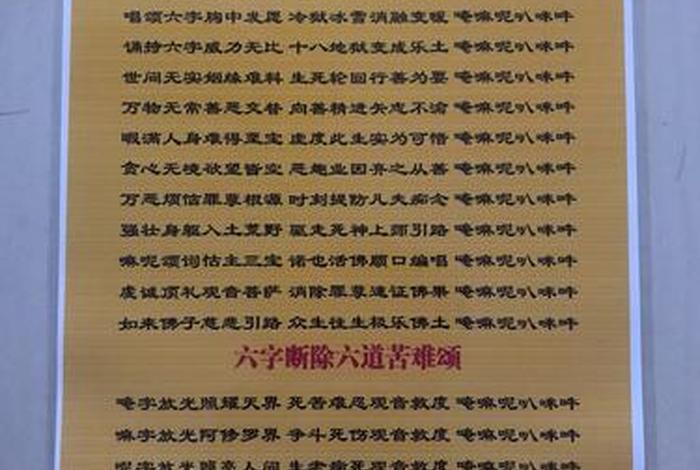 唱颂六字胸中发愿 冷狱冰雪消融变暖 唵嘛呢叭咪吽
诵持六字威力无比 十八地狱变成乐土 唵嘛呢叭咪吽
世间无实姻缘难料 生死轮回行善为要 唵嘛呢叭咪吽
万物无常善恶交替 向善精进矢志不渝 唵嘛呢叭咪吽
暇满人身难得至宝 虚度此生实为可惜 唵嘛呢叭咪吽
贪心无境欲望皆空 恶趣业因弃之从善 唵嘛呢叭咪吽
万恶烦恼罪孽根源 时刻提防凡夫痴念 唵嘛呢叭咪吽
强壮身躯入土荒野 驱走死神上师引路 唵嘛呢叭咪吽
嘛呢颂词怙主三宝 诺也活佛顺口编唱 唵嘛呢叭咪吽
虔诚顶礼观音菩萨 消除罪孽速证佛果 唵嘛呢叭咪吽
如来佛子慈悲引路 众生往生极乐佛土 唵嘛呢叭咪吽
六字断除六道苦难颂
唵字放光照耀天界 死苦难忍观音救度 唵嘛呢叭咪吽
嘛字放光阿修罗界 争斗死伤观音救度 唵嘛呢叭咪吽
呢字放光照亮人间 生老病死观音救度 唵嘛呢叭咪吽